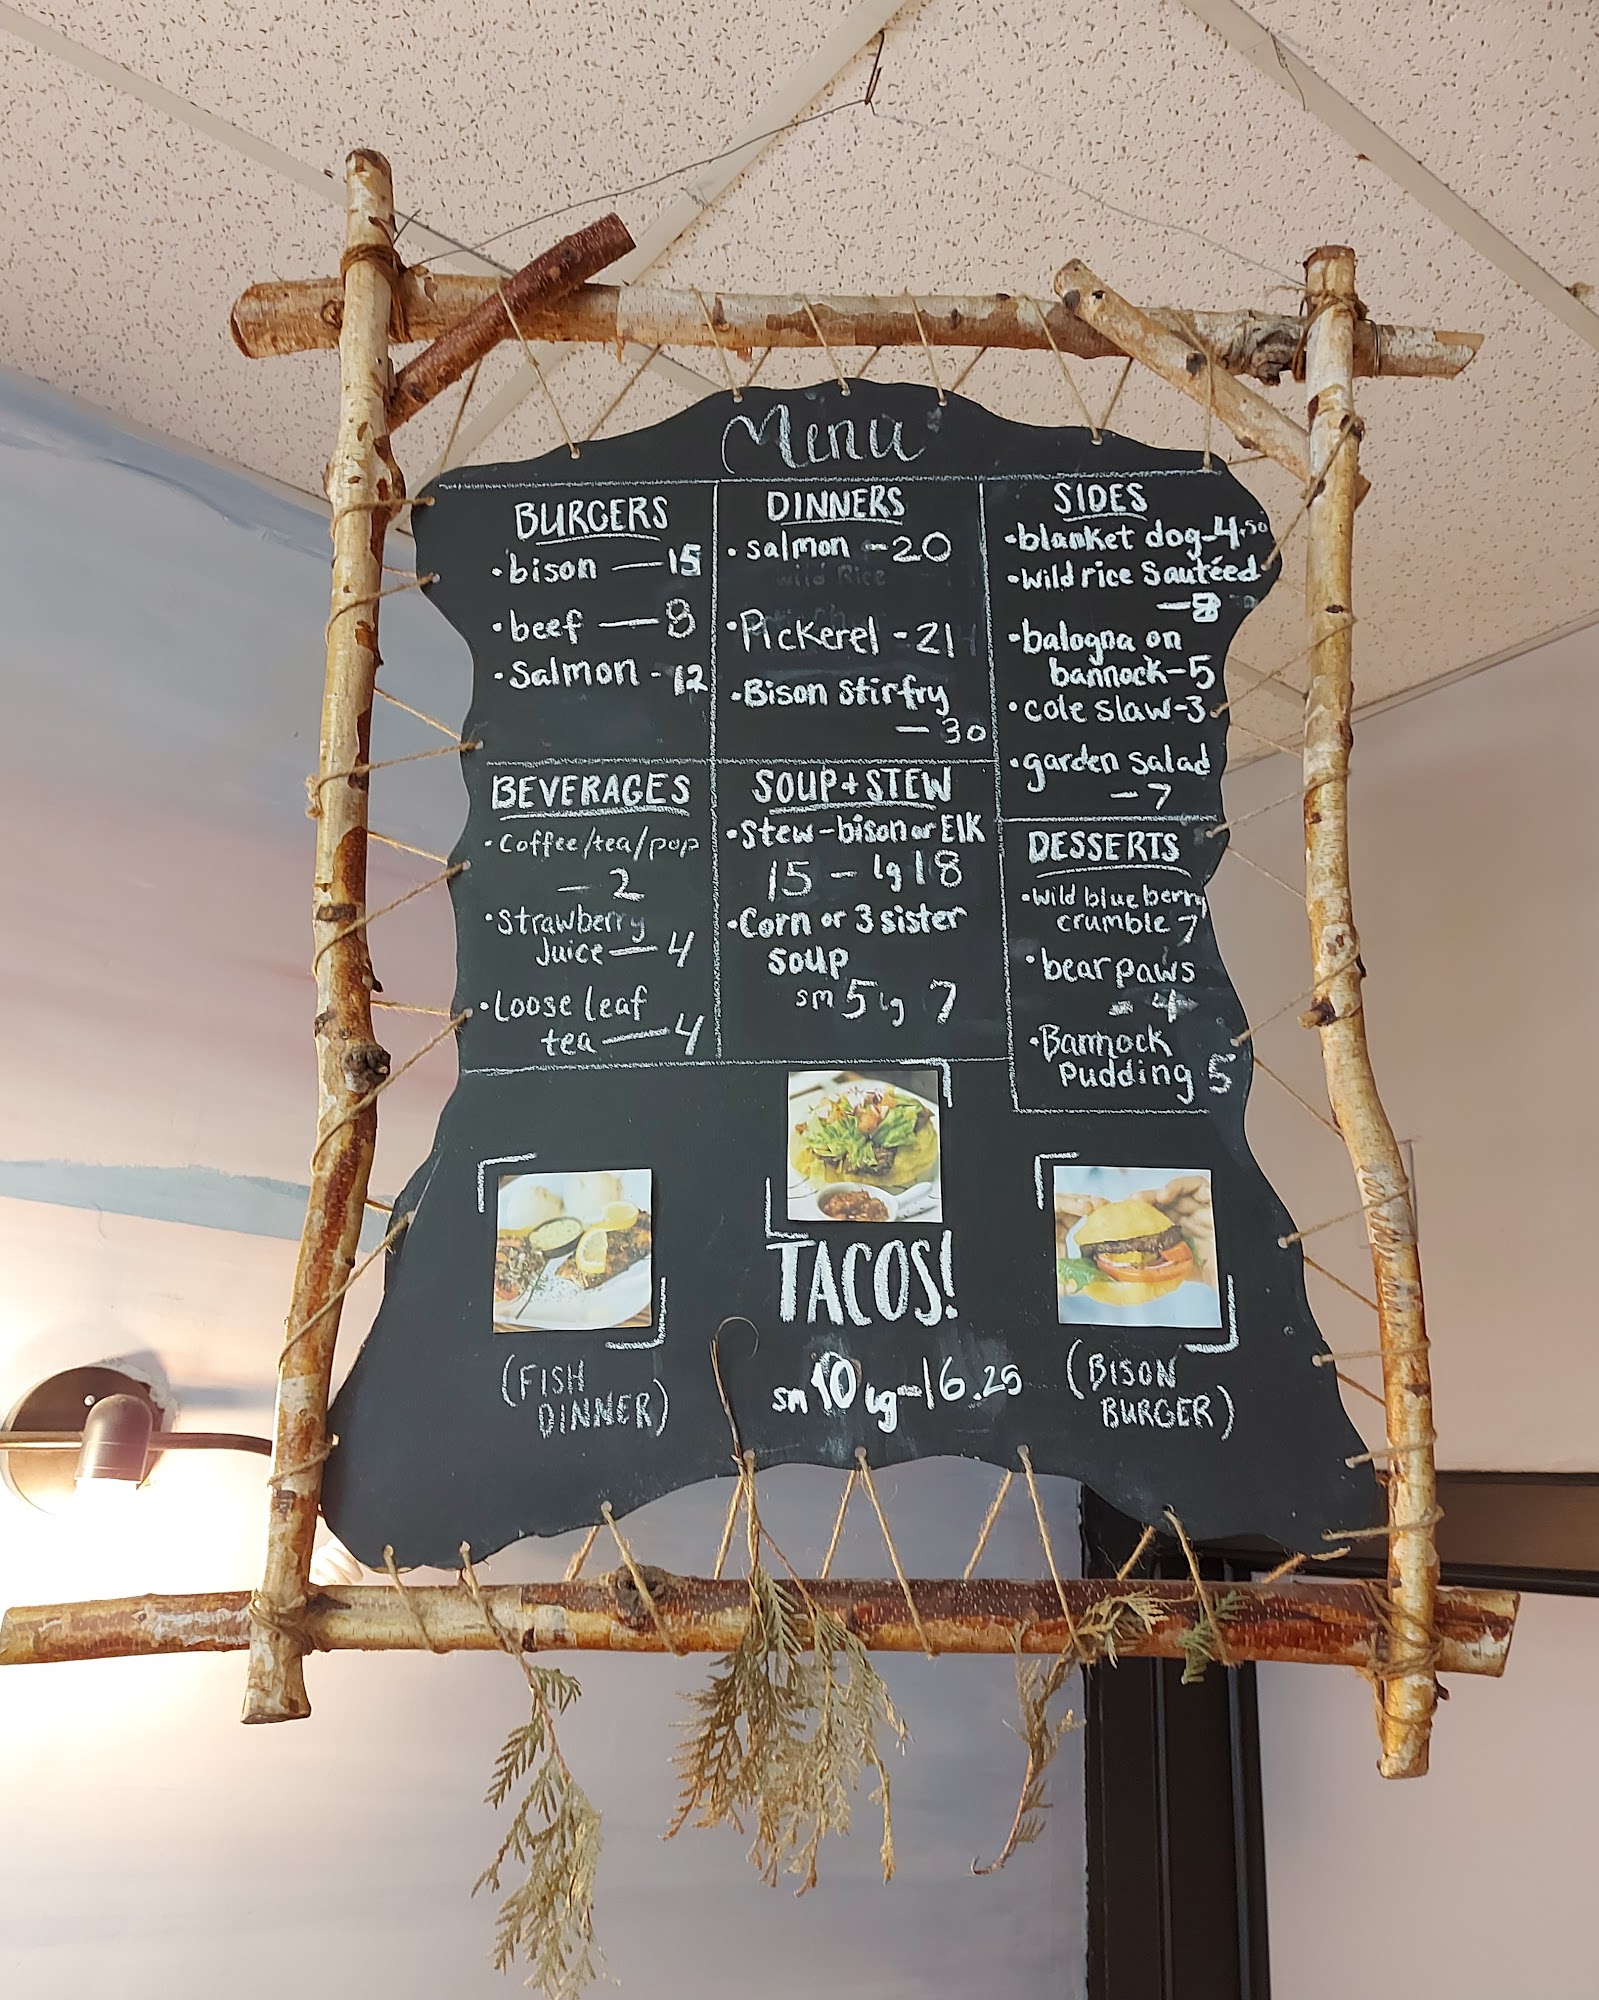 Menu
BURGERS
•bison — 15
•beef — 8
•Salmon - 12
DINNERS
•salmon - 20
wild Rice
•Pickerel - 21
•Bison Stirfry
— 30
SIDES
•blanket dog-4.50
•Wild rice Sautéed
— 8
•balogna on
bannock-5
•cole slaw-3
•garden salad
— 7
BEVERAGES
•Coffee/tea/pop
— 2
•Strawberry
Juice — 4
•Loose leaf
tea — 4
SOUP + STEW
•Stew - bison or Elk
15 - lg 18
•Corn or 3 sister
soup
sm 5 lg 7
DESSERTS
•Wild blue berry
crumble 7
•bear paws
- 4
•Bannock
Pudding 5
TACOS!
sm 10 lg-16.25
(FISH
DINNER)
(BISON
BURGER)